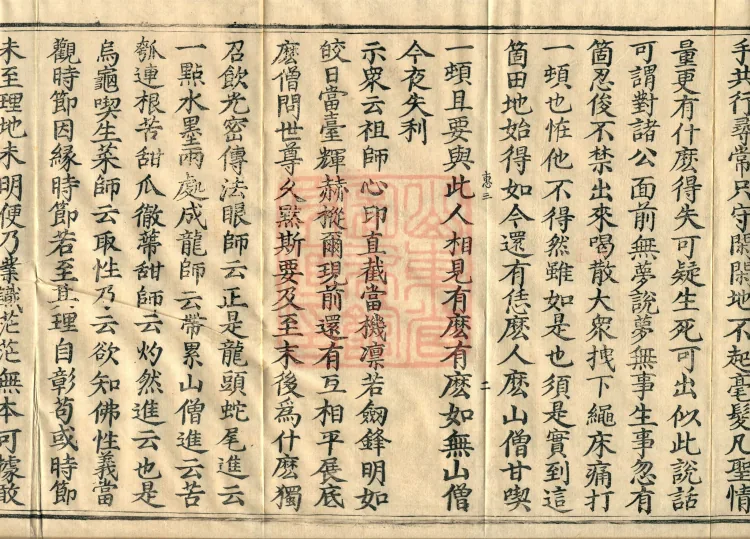 手共行尋常只守閑閑地不起毫髮凡聖情
量更有什麽得失可疑生死可出似此說話
可謂對諸公面前無夢說夢無事生事忽有
箇忍俊不禁出來喝散大衆拽下繩床痛打
一頓也恠他不得然雖如是也須是實到這
箇田地始得如今還有恁麽人麽山僧甘喫
惠三
二
一頓且要與此人相見有麽有麽如無山僧
今夜失利
示衆云祖師心印直截當機凛若劒鋒明如
皎日當臺輝赫摐爾現前還有互相平展底
麽僧問世尊久黙斯要及至末後爲什麽獨
召飲光密傳法眼師云正是龍頭蛇尾進云
一點水墨兩處成龍師云帶累山僧進云苦
瓠連根苦甜瓜徹蔕甜師云灼然進云也是
烏龜喫生菜師云取性乃云欲知佛性義當
觀時節因緣時節若至其理自彰苟或時節
未至理地未明便乃業識茫茫無本可據敢